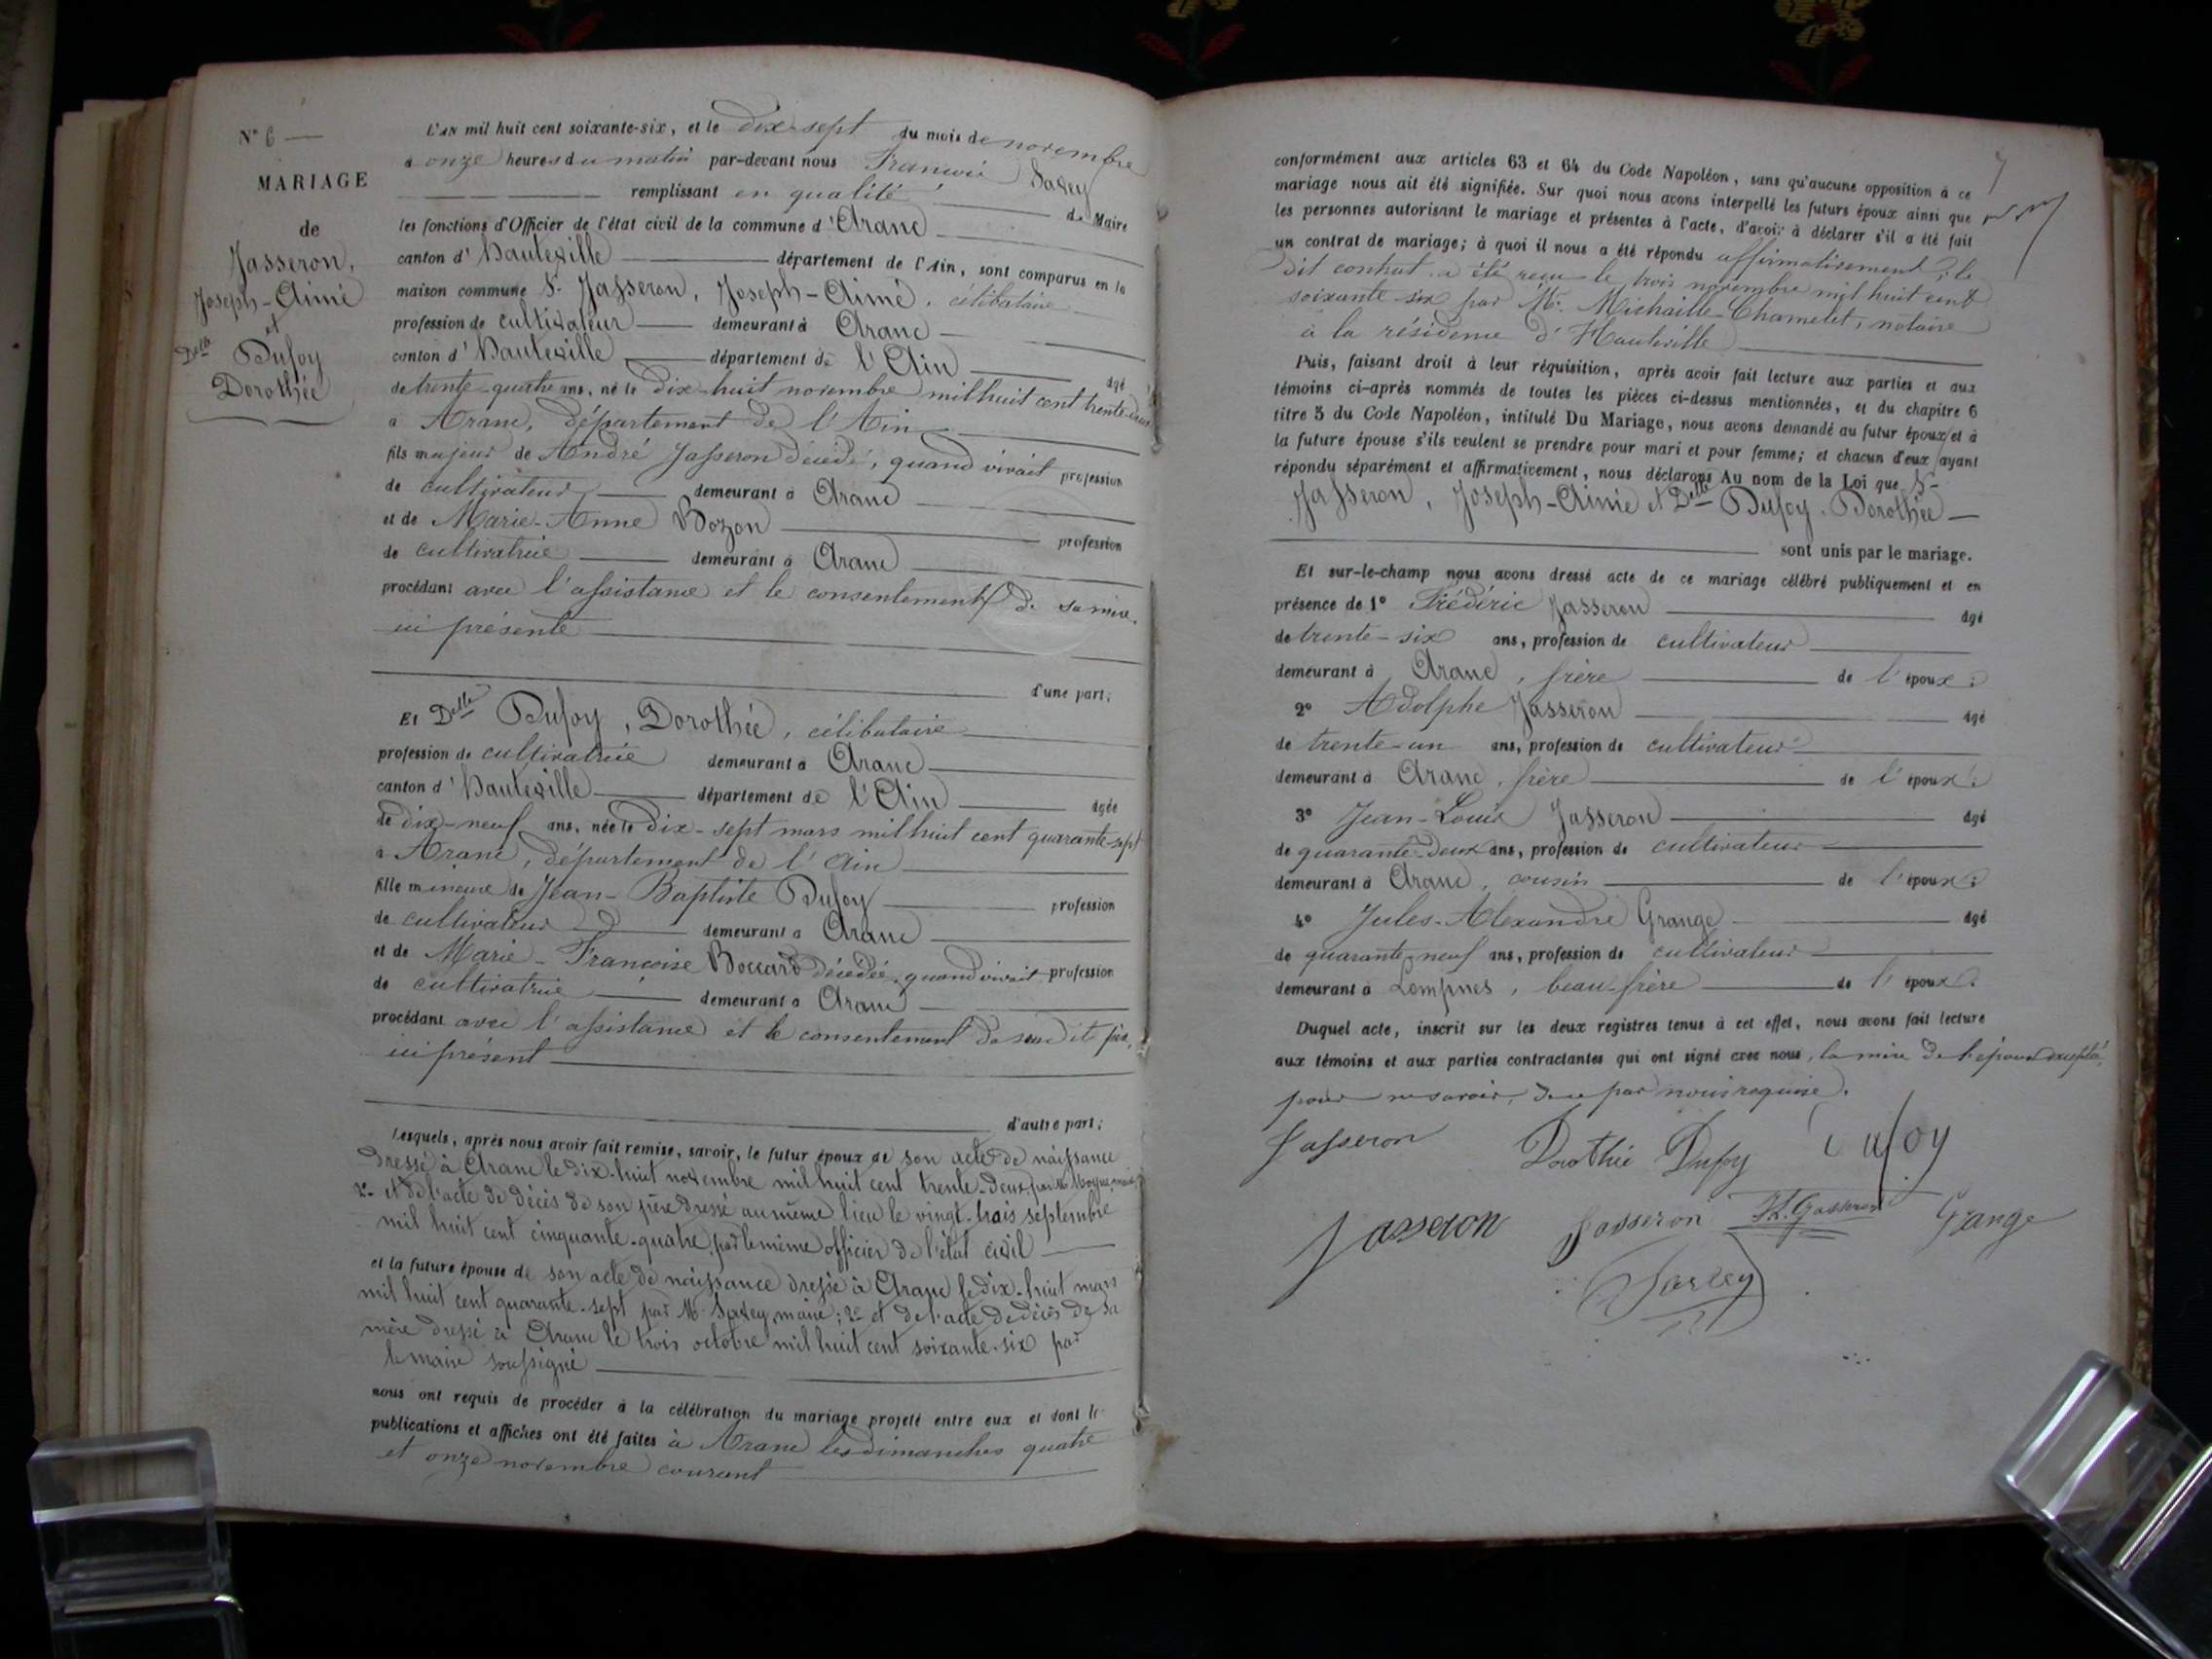 N° 6
MARIAGE
de
Jasseron,
Joseph-Aimé
et
Delle Dufoy
Dorothée
L'AN mil huit cent soixante-six, et le dix-sept du mois de novembre
à onze heures du matin par-devant nous François Savey
remplissant en qualité de Maire
les fonctions d'Officier de l'état civil de la commune d'Aranc
canton d'Hauteville département de l'Ain, sont comparus en la
maison commune Sr Jasseron, Joseph-Aimé, célibataire
profession de cultivateur demeurant à Aranc
canton d'Hauteville département de l'Ain âgé
de trente-quatre ans, né le dix-huit novembre mil huit cent trente-deux
à Aranc, département de l'Ain
fils majeur de André Jasseron décédé, quand vivait profession
de cultivateur demeurant à Aranc
et de Marie-Anne Bozon profession
de cultivatrice demeurant à Aranc
procédant avec l'assistance et le consentement de sa mère,
ici présente
d'une part;
Et Delle Dufoy, Dorothée, célibataire
profession de cultivatrice demeurant à Aranc
canton d'Hauteville département de l'Ain âgée
de dix-neuf ans, née le dix-sept mars mil huit cent quarante-sept
à Aranc, département de l'Ain
fille mineure de Jean-Baptiste Dufoy profession
de cultivateur demeurant à Aranc
et de Marie-Françoise Boccard décédée, quand vivait profession
de cultivatrice demeurant à Aranc
procédant avec l'assistance et le consentement de son dit père,
ici présent
d'autre part;
Lesquels, après nous avoir fait remise, savoir, le futur époux de son acte de naissance
dressé à Aranc le dix-huit novembre mil huit cent trente-deux, par M. Moyne, maire;
2° et de l'acte de décès de son père dressé au même lieu le vingt-trois septembre
mil huit cent cinquante-quatre, par le même officier de l'état civil
et la future épouse de son acte de naissance dressé à Aranc le dix-huit mars
mil huit cent quarante-sept par M. Savey, maire; 2° et de l'acte de décès de sa
mère dressé à Aranc le trois octobre mil huit cent soixante-six par
le maire soussigné
nous ont requis de procéder à la célébration du mariage projeté entre eux et dont le
publications et affiches ont été faites à Aranc les dimanches quatre
et onze novembre courant
7
conformément aux articles 63 et 64 du Code Napoléon, sans qu'aucune opposition à ce
mariage nous ait été signifiée. Sur quoi nous avons interpellé les futurs époux ainsi que
les personnes autorisant le mariage et présentes à l'acte, d'avoir à déclarer s'il a été fait
un contrat de mariage; à quoi il nous a été répondu affirmativement; le
dit contrat a été reçu le trois novembre mil huit cent
soixante-six par Me Michaille-Chamelet, notaire
à la résidence d'Hauteville
Puis, faisant droit à leur réquisition, après avoir fait lecture aux parties et aux
témoins ci-après nommés de toutes les pièces ci-dessus mentionnées, et du chapitre 6
titre 5 du Code Napoléon, intitulé Du Mariage, nous avons demandé au futur époux et à
la future épouse s'ils veulent se prendre pour mari et pour femme; et chacun d'eux ayant
répondu séparément et affirmativement, nous déclarons Au nom de la Loi que Sr
Jasseron, Joseph-Aimé et Delle Dufoy, Dorothée
sont unis par le mariage.
Et sur-le-champ nous avons dressé acte de ce mariage célébré publiquement et en
présence de 1° Frédéric Jasseron âgé
de trente-six ans, profession de cultivateur
demeurant à Aranc, frère de l'époux;
2° Adolphe Jasseron âgé
de trente-un ans, profession de cultivateur
demeurant à Aranc, frère de l'époux;
3° Jean-Louis Jasseron âgé
de quarante-deux ans, profession de cultivateur
demeurant à Aranc, cousin de l'époux;
4° Jules-Alexandre Grange âgé
de quarante-neuf ans, profession de cultivateur
demeurant à Lompnes, beau-frère de l'époux.
Duquel acte, inscrit sur les deux registres tenus à cet effet, nous avons fait lecture
aux témoins et aux parties contractantes qui ont signé avec nous, la mère de l'époux exceptée,
pour ne savoir, de ce par nous requise.
Jasseron Dorothée Dufoy Dufoy
Jasseron Jasseron Fk. Jasseron Grange
Savey